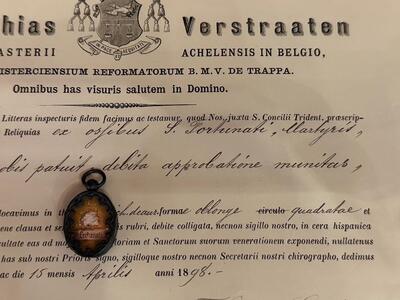 IN PACE AEQUITATE
hias Verstraaten
ASTERII ACHELENSIS IN BELGIO,
ISTERCIENSIUM REFORMATORUM B. M. V. DE TRAPPA.
Omnibus has visuris salutem in Domino.
Litteras inspecturis fidem facimus ac testamur, quod Nos, juxta S. Concilii Trident, præscrip-
Reliquias ex ossibus S. Fortunati, Martyris,
obis patuit debita approbatione munitas,
locavimus in th ich. deaur. formæ oblonge circulo quadratae et
ene clausa et s is rubri, debite colligata, necnon sigillo nostro, in cera hispanica
ultate eas ad mo Gloriam et Sanctorum suorum venerationem exponendi, nullatenus
has sub nostri Prioris signo, sigilloque nostro necnon Secretarii nostri chirographo, dedimus
ac die 15 mensis Aprilis anni 1898.—